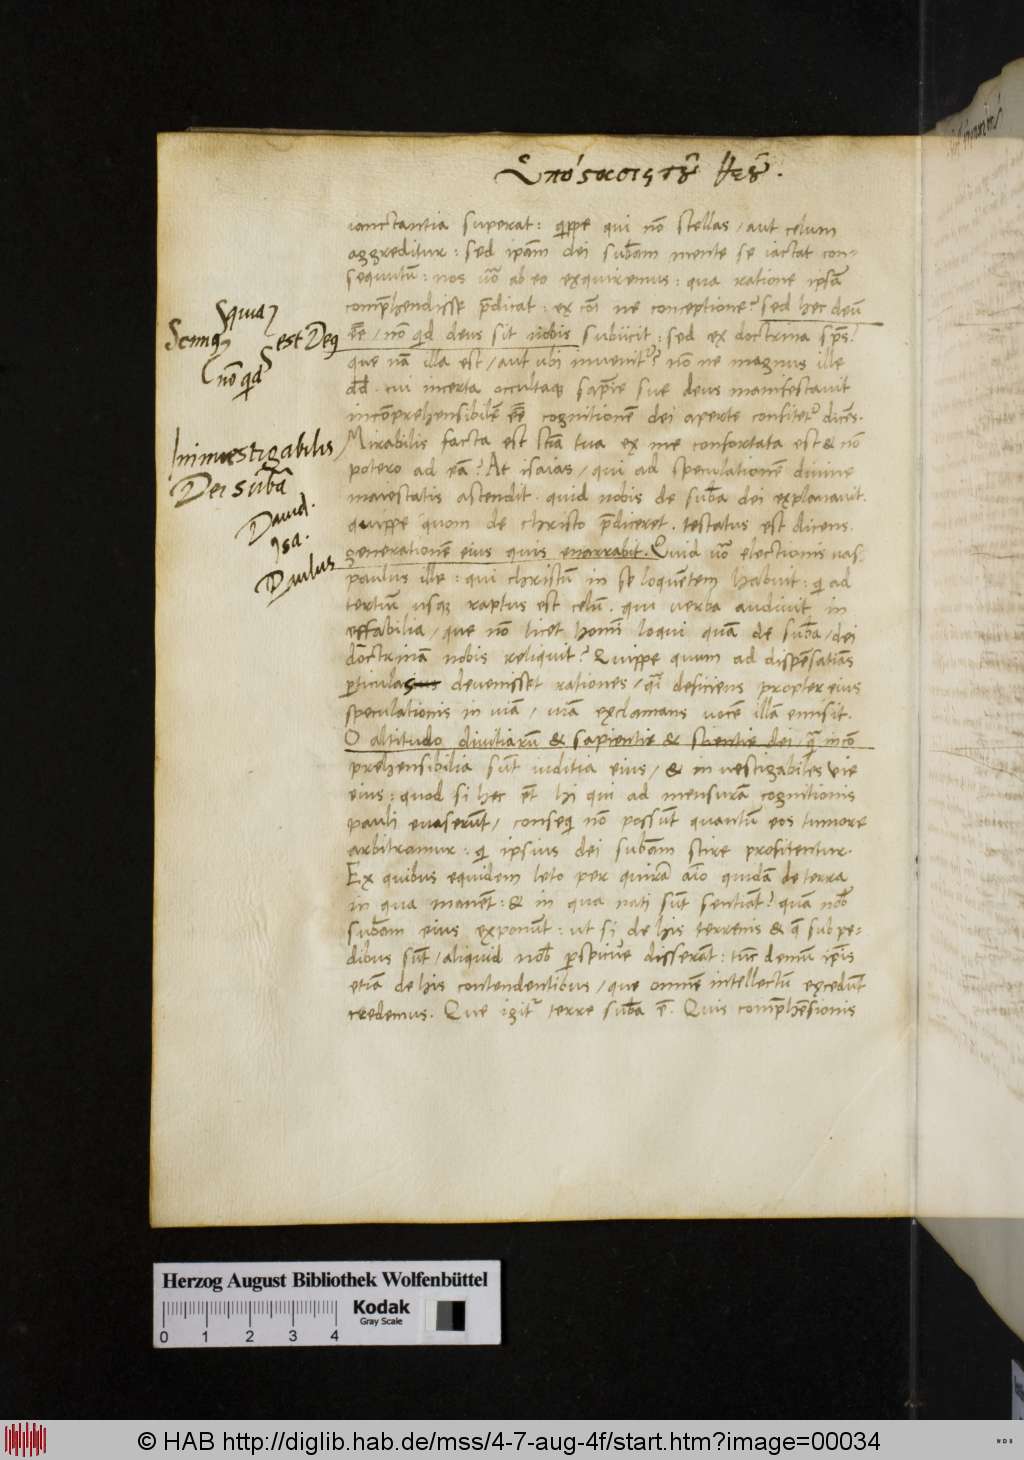 Ὑπόστασις τοῦ θεοῦ.
ianctantia superat: quippe qui nō stellas / aut celum
aggreditur: sed ipām dei subāam mente se iactat con-
sequutū: nos uō ab eo exquiremus: qua ratione ipsā
comp̄hendisse p̄dicat: ex cōi ne conceptione? sed hec deū
eē / nō qd deus sit nobis subiicit: sed ex doctrina sp̄s?
que nā illa est / aut ubi inuenit? nō ne magnus ille
dd̄. cui incerta occultaq sap̄ie sue deus manifestauit
incōprehensibilē eē cognitionē dei aperte confitet dicēs.
Mirabilis facta est sciā tua ex me confortata est & nō
potero ad eā? At isaias / qui ad speculationē diuine
maiestatis ascendit. quid nobis de subā dei explanauit.
quippe quom de christo p̄diceret. testatus est dicens.
generationem eius quis enarrabit. Quid uō electionis uas.
paulus ille: qui christū in se loquētem habuit: q ad
tertiū usq raptus est celū. qui uerba audiuit in
effabilia / que nō licet homī loqui quā de subā / dei
doctrinā nobis reliquit? Quippe quum ad dispēsatiās
pticulas deuenisset rationes / qī deficiens propter eius
speculationis in uiā / uiā exclamans uocē illā emisit.
O altitudo diuitiarū & sapientie & scientie dei / q̄ incō
prehensibilia sūt iuditia eius / & in uestigabiles vie
eius: quod si hec ēt hi qui ad mensurā cognitionis
pauli euaserūt / conseq nō possūt quantū eos tumore
arbitramur: q ipsius dei subāam scire profitentur.
Ex quibus equidem leto per quirā aīo quidā de terra
in qua manēt: & in qua nati sūt sentiāt? quā nob
subāam eius exponūt: ut si de his terrenis & q̄ sub pe-
dibus sūt / aliquid nob pspicue disserāt: tūc demū ip̄is
etiā de his contendentibus / que omnē intellectū excedūt
credemus. Que igit terre subā ē. Quis comp̄hēsionis
Scimus
quia
est Deus
nō qid
Inimuestigabilis
Dei subā
Dauid.
Isa.
Paulus
Herzog August Bibliothek Wolfenbüttel
Kodak
Gray Scale
0 1 2 3 4
© HAB http://diglib.hab.de/mss/4-7-aug-4f/start.htm?image=00034